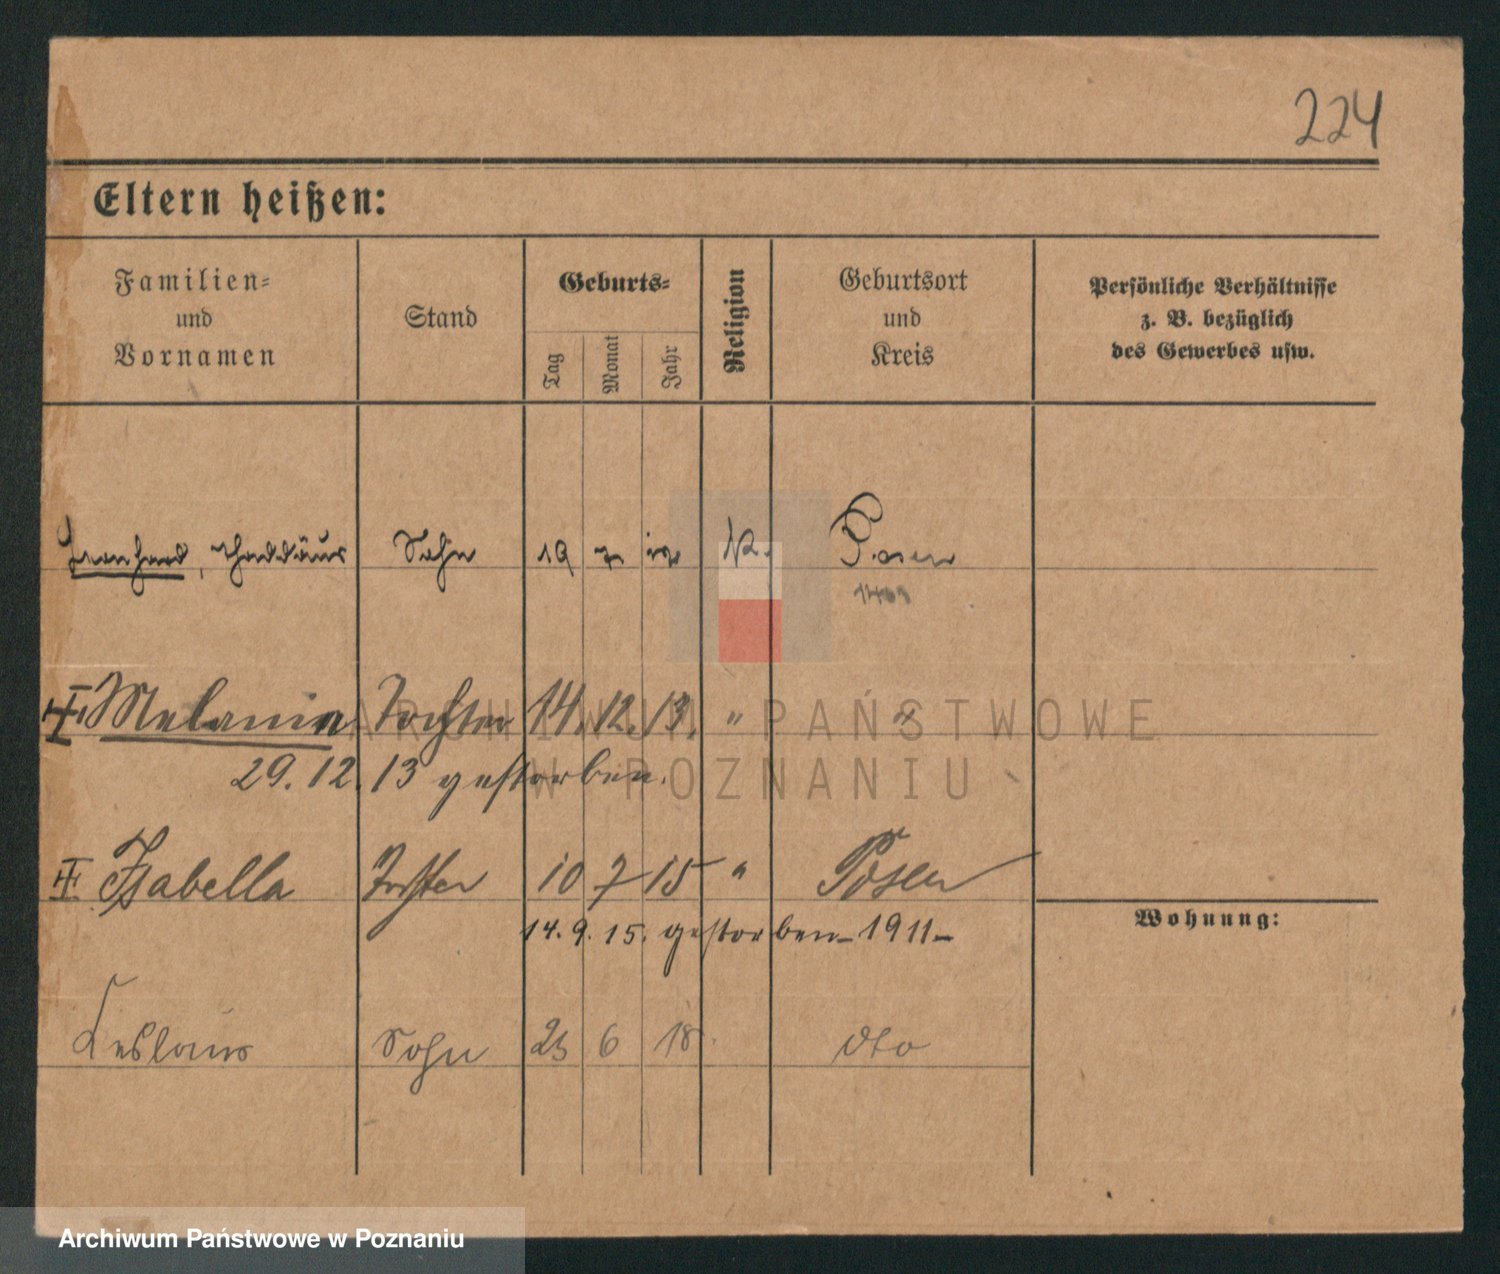 224
Eltern heißen:
Familien-
und
Vornamen
Stand
Geburts-
Tag
Monat
Jahr
Religion
Geburtsort
und
Kreis
Persönliche Verhältnisse
z. B. bezüglich
des Gewerbes usw.
Thaddäus Sohn 19 7 12 K. Posen
Melanie Tochter 14. 12. 13. " "
29. 12. 13 gestorben.
Isabella Tochter 10 7 15 " Posen
14. 9. 15. gestorben - 1911 -
Wohnung:
Leslaus Sohn 23 6 18. dto
ARCHIWUM PAŃSTWOWE
W POZNANIU
Archiwum Państwowe w Poznaniu